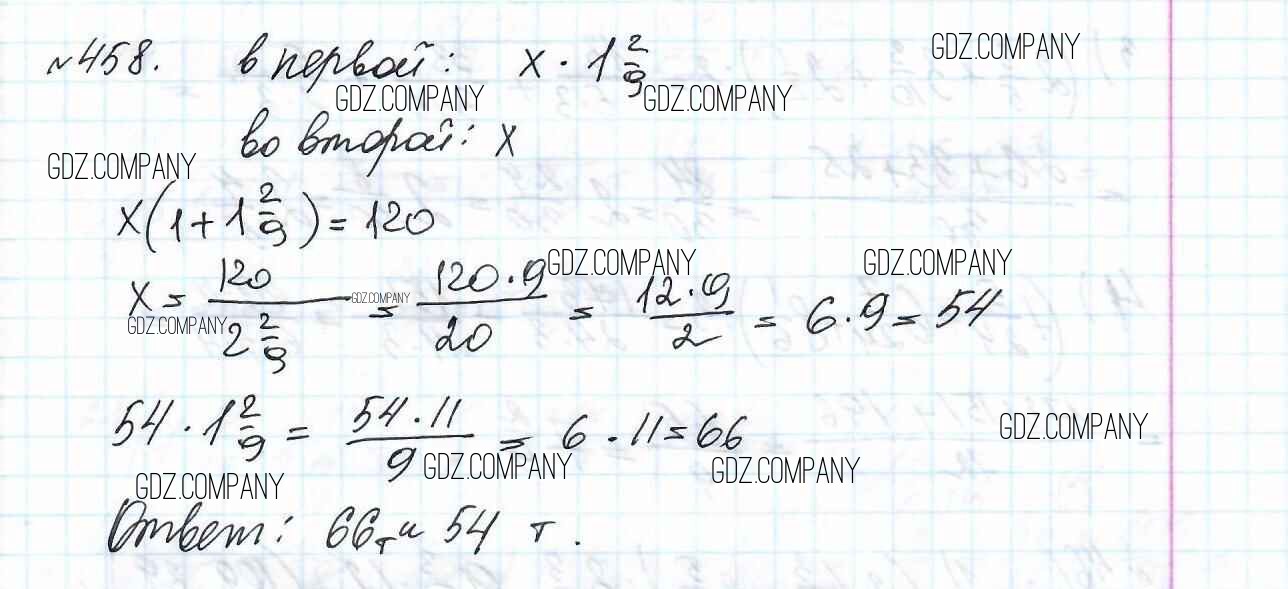 №458. в первой: x · 1 2/9 GDZ.COMPANY
GDZ.COMPANY GDZ.COMPANY
во второй: x
GDZ.COMPANY
x(1 + 1 2/9) = 120
GDZ.COMPANY GDZ.COMPANY
x = 120 / 2 2/9 = 120 · 9 / 20 = 12 · 9 / 2 = 6 · 9 = 54
GDZ.COMPANY
GDZ.COMPANY
54 · 1 2/9 = 54 · 11 / 9 = 6 · 11 = 66 GDZ.COMPANY
GDZ.COMPANY GDZ.COMPANY
GDZ.COMPANY
Ответ: 66 т и 54 т.